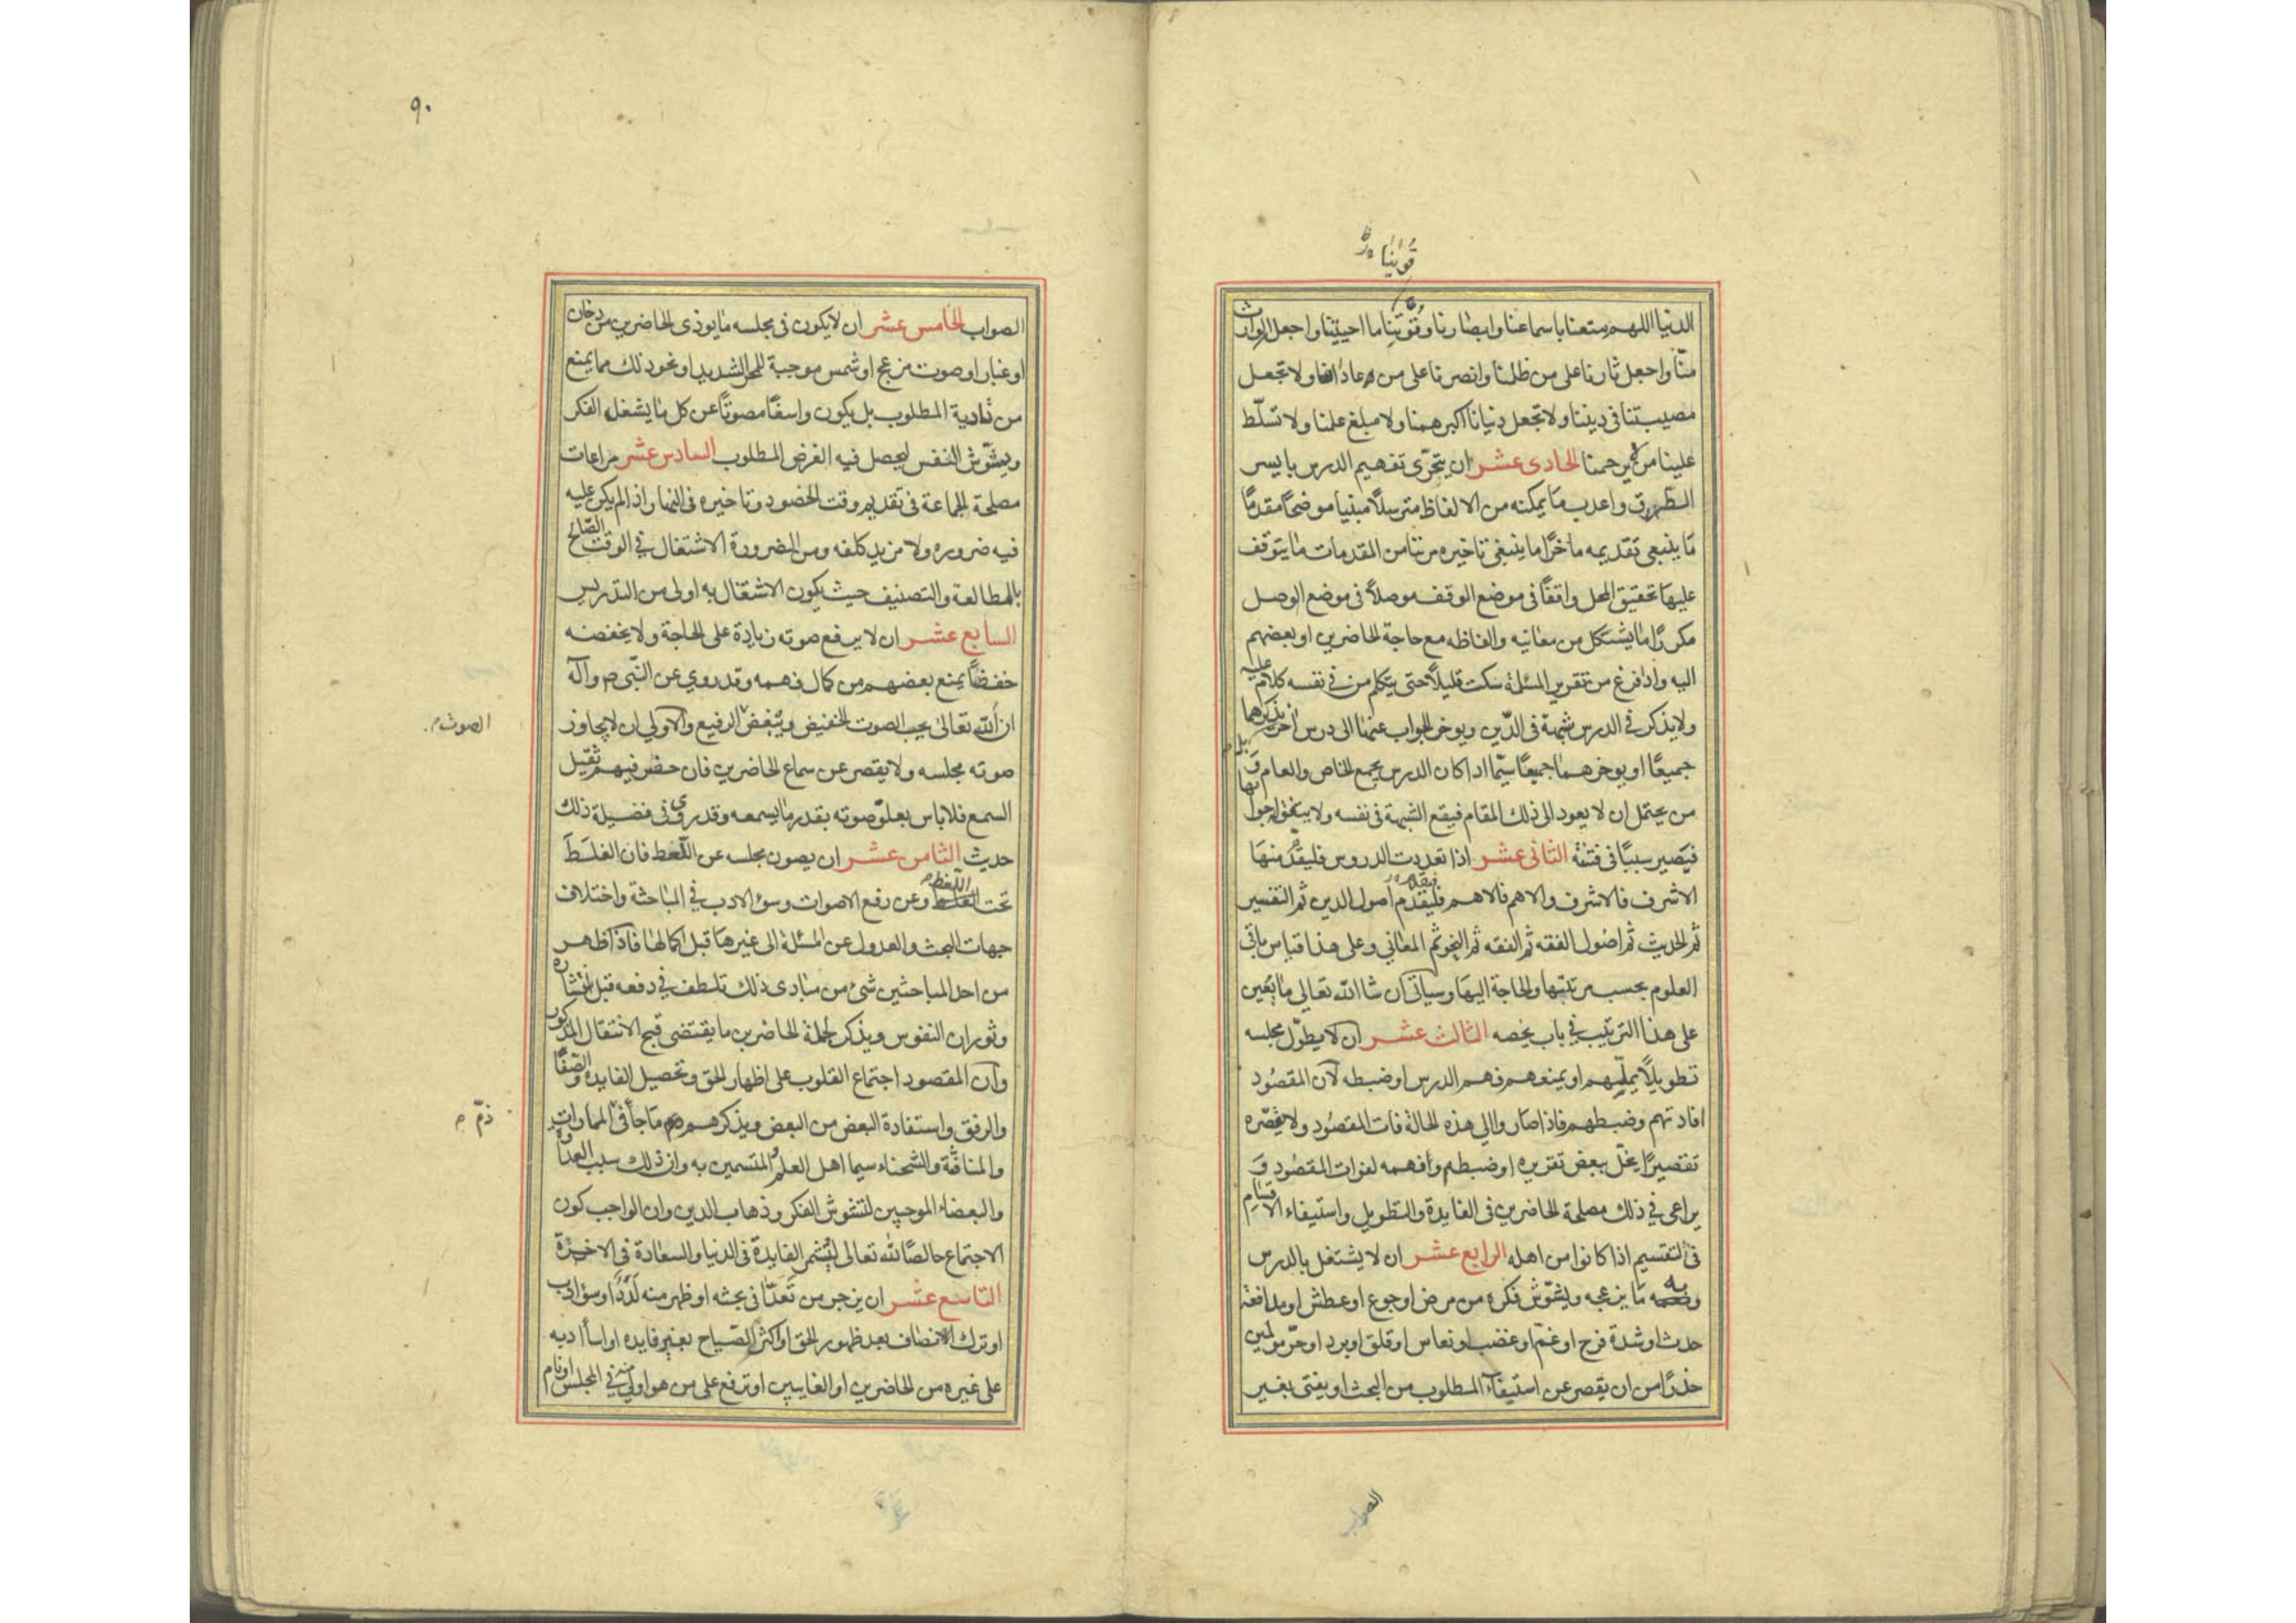 قوتنا
الدنيا اللهم متعنا باسماعنا وابصارنا وقوتنا ما احييتنا واجعل الوارث
منّا واجعل ثارنا على من ظلمنا وانصرنا على من عادانا ولا تجعل
مصيبتنا في ديننا ولا تجعل دنيانا اكبر همنا ولا مبلغ علمنا ولا تسلّط
علينا من لا يرحمنا الحادى عشر ان يتحرّى تفهيم الدرس بايسر
الطرق واعذب ما يمكنه من الالفاظ مترسلًا مبنيا موضحًا مقدمًا
ما ينبغي تقديمه ماخرًا ما ينبغي تاخيره مرتبا من المقدمات ما يتوقف
عليها تحقيق المحل واقفًا في موضع الوقف موصلًا في موضع الوصل
مكررًا ما يشكل من معانيه والفاظه مع حاجة الحاضرين او بعضهم
اليه واذا فرغ من تقرير المسئلة سكت قليلًا حتى يتكلم من في نفسه كلام عليه
ولا يذكر في الدرس شبهة في الدّين ويوخر الجواب عنها الى درس اخر بل يذكرهما
جميعًا او يوخرهما جميعًا سيّما اذا كان الدرس يجمع الخاص والعام و
من يحتمل ان لا يعود الى ذلك المقام فيقع الشبهة في نفسه ولا يتفق له جوابها
فيصير سببًا في فتنة الثانى عشر اذا تعددت الدروس فليقدّم منها
الاشرف فالاشرف والاهم فالاهم فليقدم اصول الدين ثم التفسير
ثم الحديث ثم اصول الفقه ثم الفقه ثم النحو ثم المعاني وعلى هذا قياس باقي
العلوم بحسب مرتبتها والحاجة اليها وسياتي ان شا الله تعالى ما يعين
على هذا الترتيب في باب يخصه الثالث عشر ان لا يطوّل مجلسه
تطويلًا يملّهم او يمنعهم فهم الدرس او ضبطه لان المقصود
افادتهم وضبطهم فاذا صاروا الى هذه الحالة فات المقصود ولا يقصّره
تقصيرًا يخلّ ببعض تقريره او ضبطه وافهمه لفوات المقصود و
يراعى في ذلك مصلحة الحاضرين في الفايدة والتطويل واستيفاء الاقسام
في التقسيم اذا كانوا من اهله الرابع عشر ان لا يشتغل بالدرس
وبه ما يزعجه ويشوّش فكره من مرض او جوع او عطش او مدافعة
حدث او شدة فرح او غمّ او غضب او نعاس او قلق او برد او حرّ مولمين
حذرًا من ان يقصر عن استيفاء المطلوب من البحث او يفتى بغير
الصواب
٩٠
الصواب الخامس عشر ان لا يكون في مجلسه ما يوذى الحاضرين من دخان
او غبار او صوت مزعج او شمس موجبة للحر الشديد او نحو ذلك مما يمنع
من تادية المطلوب بل يكون واسعًا مصونًا عن كل ما يشغل الفكر
ويشوّش النفس ليحصل فيه الغرض المطلوب السادس عشر مراعات
مصلحة الجماعة في تقديم وقت الحضور وتاخيره في النهار اذا لم يكن عليه
فيه ضروره ولا مزيد كلفه ومن الضرورة الاشتغال في الوقت الصّالح
بالمطالعة والتصنيف حيث يكون الاشتغال به اولى من التدريس
السابع عشر ان لا يرفع صوته زيادة على الحاجة ولا يخفضه
خفضًا يمنع بعضهم من كمال فهمه وقد روي عن النّبي ص وآله
ان الله تعالى يحب الصوت الخفيض ويبغض الرفيع والاولى ان لا يجاوز
الصوت
صوته مجلسه ولا يقصر عن سماع الحاضرين فان حضر فيهم ثقيل
السمع فلا باس بعلوّ صوته بقدر ما يسمعه وقد روى في فضيلة ذلك
حديث الثامن عشر ان يصون مجلسه عن اللّغط فان الغلط
تحت اللّغط وعن رفع الاصوات وسؤ الادب في المباحثة واختلاف
جهات البحث والعدول عن المسئلة الى غيرها قبل اكمالها فاذا ظهر
من احد المباحثين شئ من مبادى ذلك تلطف في دفعه قبل انتشاره
وثوران النفوس ويذكر لجملة الحاضرين ما يقتضى قبح الانتقال المذكور
وان المقصود اجتماع القلوب على اظهار الحق وتحصيل الفايده والصّفا
والرفق واستفادة البعض من البعض ويذكرهم ما جأ في المماراتِ
ذمّ
والمنافثة والشحناء سيما اهل العلم والمتسمين به وان ذلك سبب العداوة
والبغضاء الموجبين لتشوش الفكر وذهاب الدين وان الواجب كون
الاجتماع خالصًا لله تعالى ليثمر الفايدة في الدنيا والسعادة في الاخرة
التاسع عشر ان يزجر من تعدّا في بحثه او ظهر منه لَدَدًا وسؤ ادب
او ترك الانصاف بعد ظهور الحق او اكثر الصّياح بغير فايده او اسأ ادبه
على غيره من الحاضرين او الغايبين او ترفع على من هو اولى منه في المجلس او نام